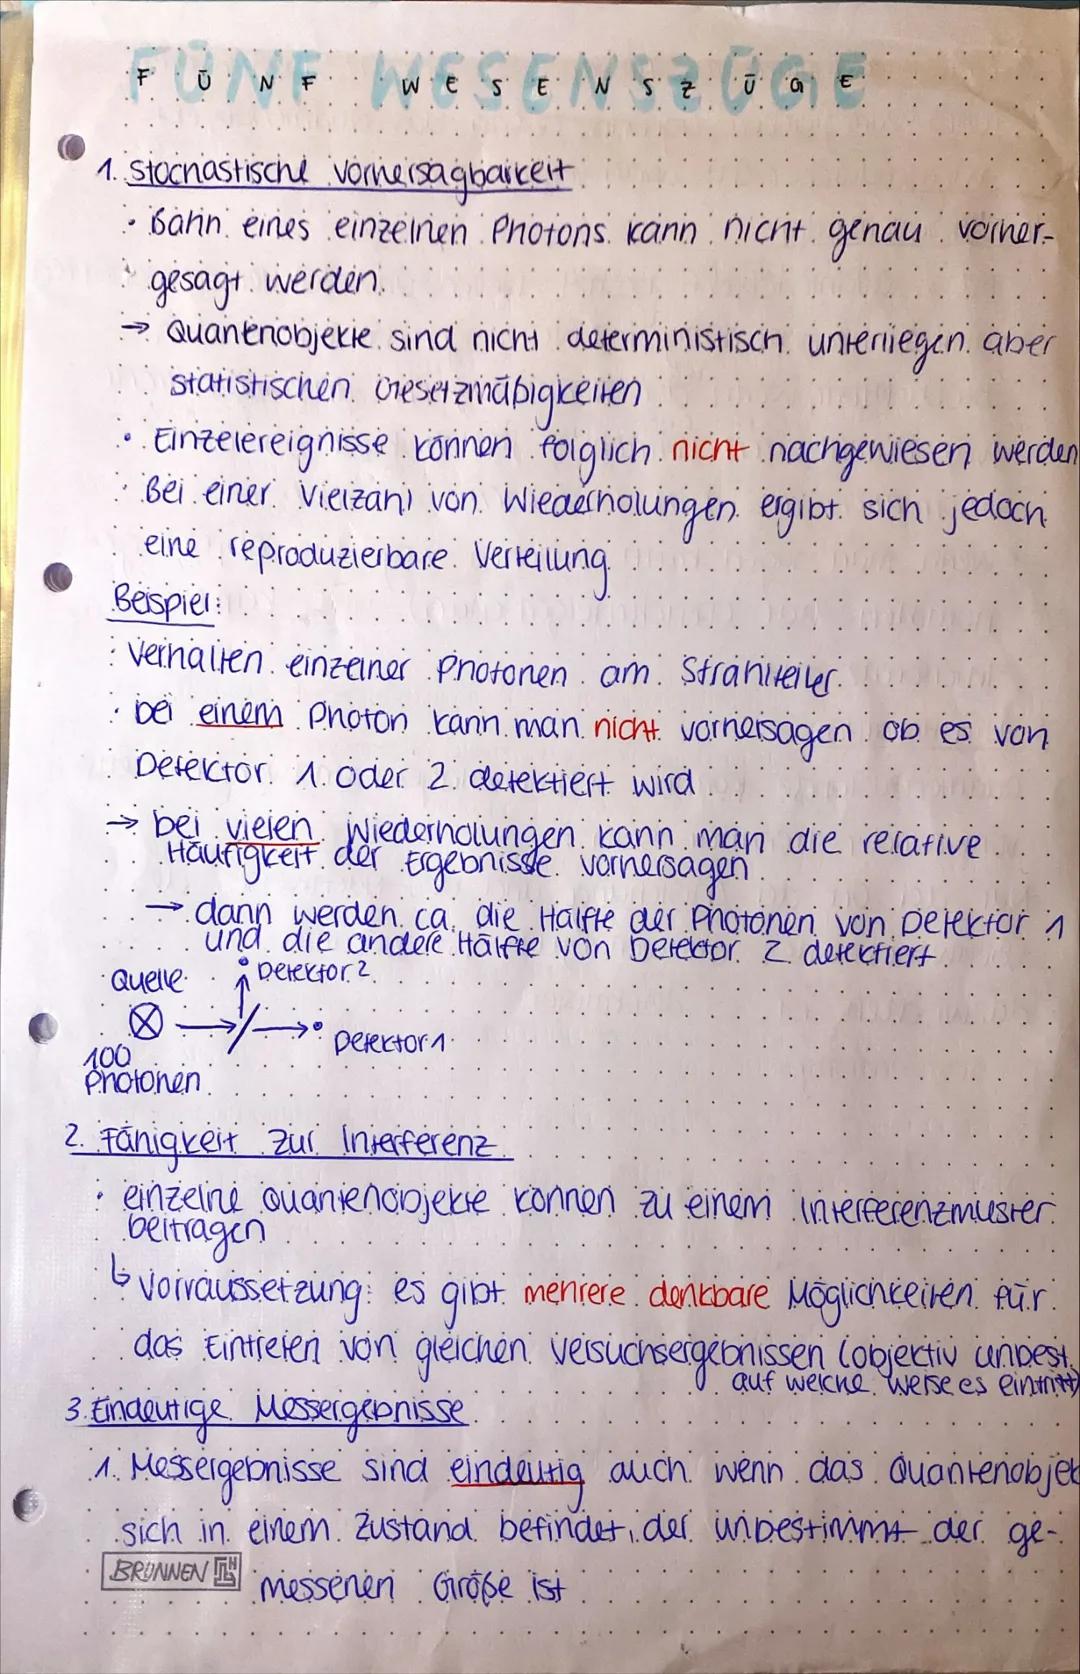 FÜNF WESENSZÜGE
1. Stochastische Vorhersagbarkeit
· Bahn eines einzelnen Photons kann nicht genau vorher-
gesagt werden
→ Quantenobjekte sind nicht deterministisch unterliegen aber
statistischen Gesetzmäßigkeiten
· Einzelereignisse können folglich nicht nachgewiesen werden
· Bei einer Vielzahl von Wiederholungen ergibt sich jedoch
eine reproduzierbare Verteilung
Beispiel:
· Verhalten einzelner Photonen am Strahlteiler
· bei einem Photon kann man nicht vorhersagen ob es von
Detektor 1 oder 2 detektiert wird
→ bei vielen Wiederholungen kann man die relative
Häufigkeit der Ergebnisse vorhersagen
→ dann werden ca. die Hälfte der Photonen von Detektor 1
und die andere Hälfte von Detektor 2 detektiert
Quelle Detektor 2
Detektor 1
100
Photonen
2. Fähigkeit zur Interferenz
· einzelne Quantenobjekte können zu einem Interferenzmuster
beitragen
↳ Vorraussetzung: es gibt mehrere denkbare Möglichkeiten für
das Eintreten von gleichen Versuchsergebnissen (objektiv unbest.
auf welche Weise es eintritt)
3. Eindeutige Messergebnisse
1. Messergebnisse sind eindeutig auch wenn das Quantenobjek
sich in einem Zustand befindet, der unbestimmt der ge-
messenen Größe ist
BRUNNEN